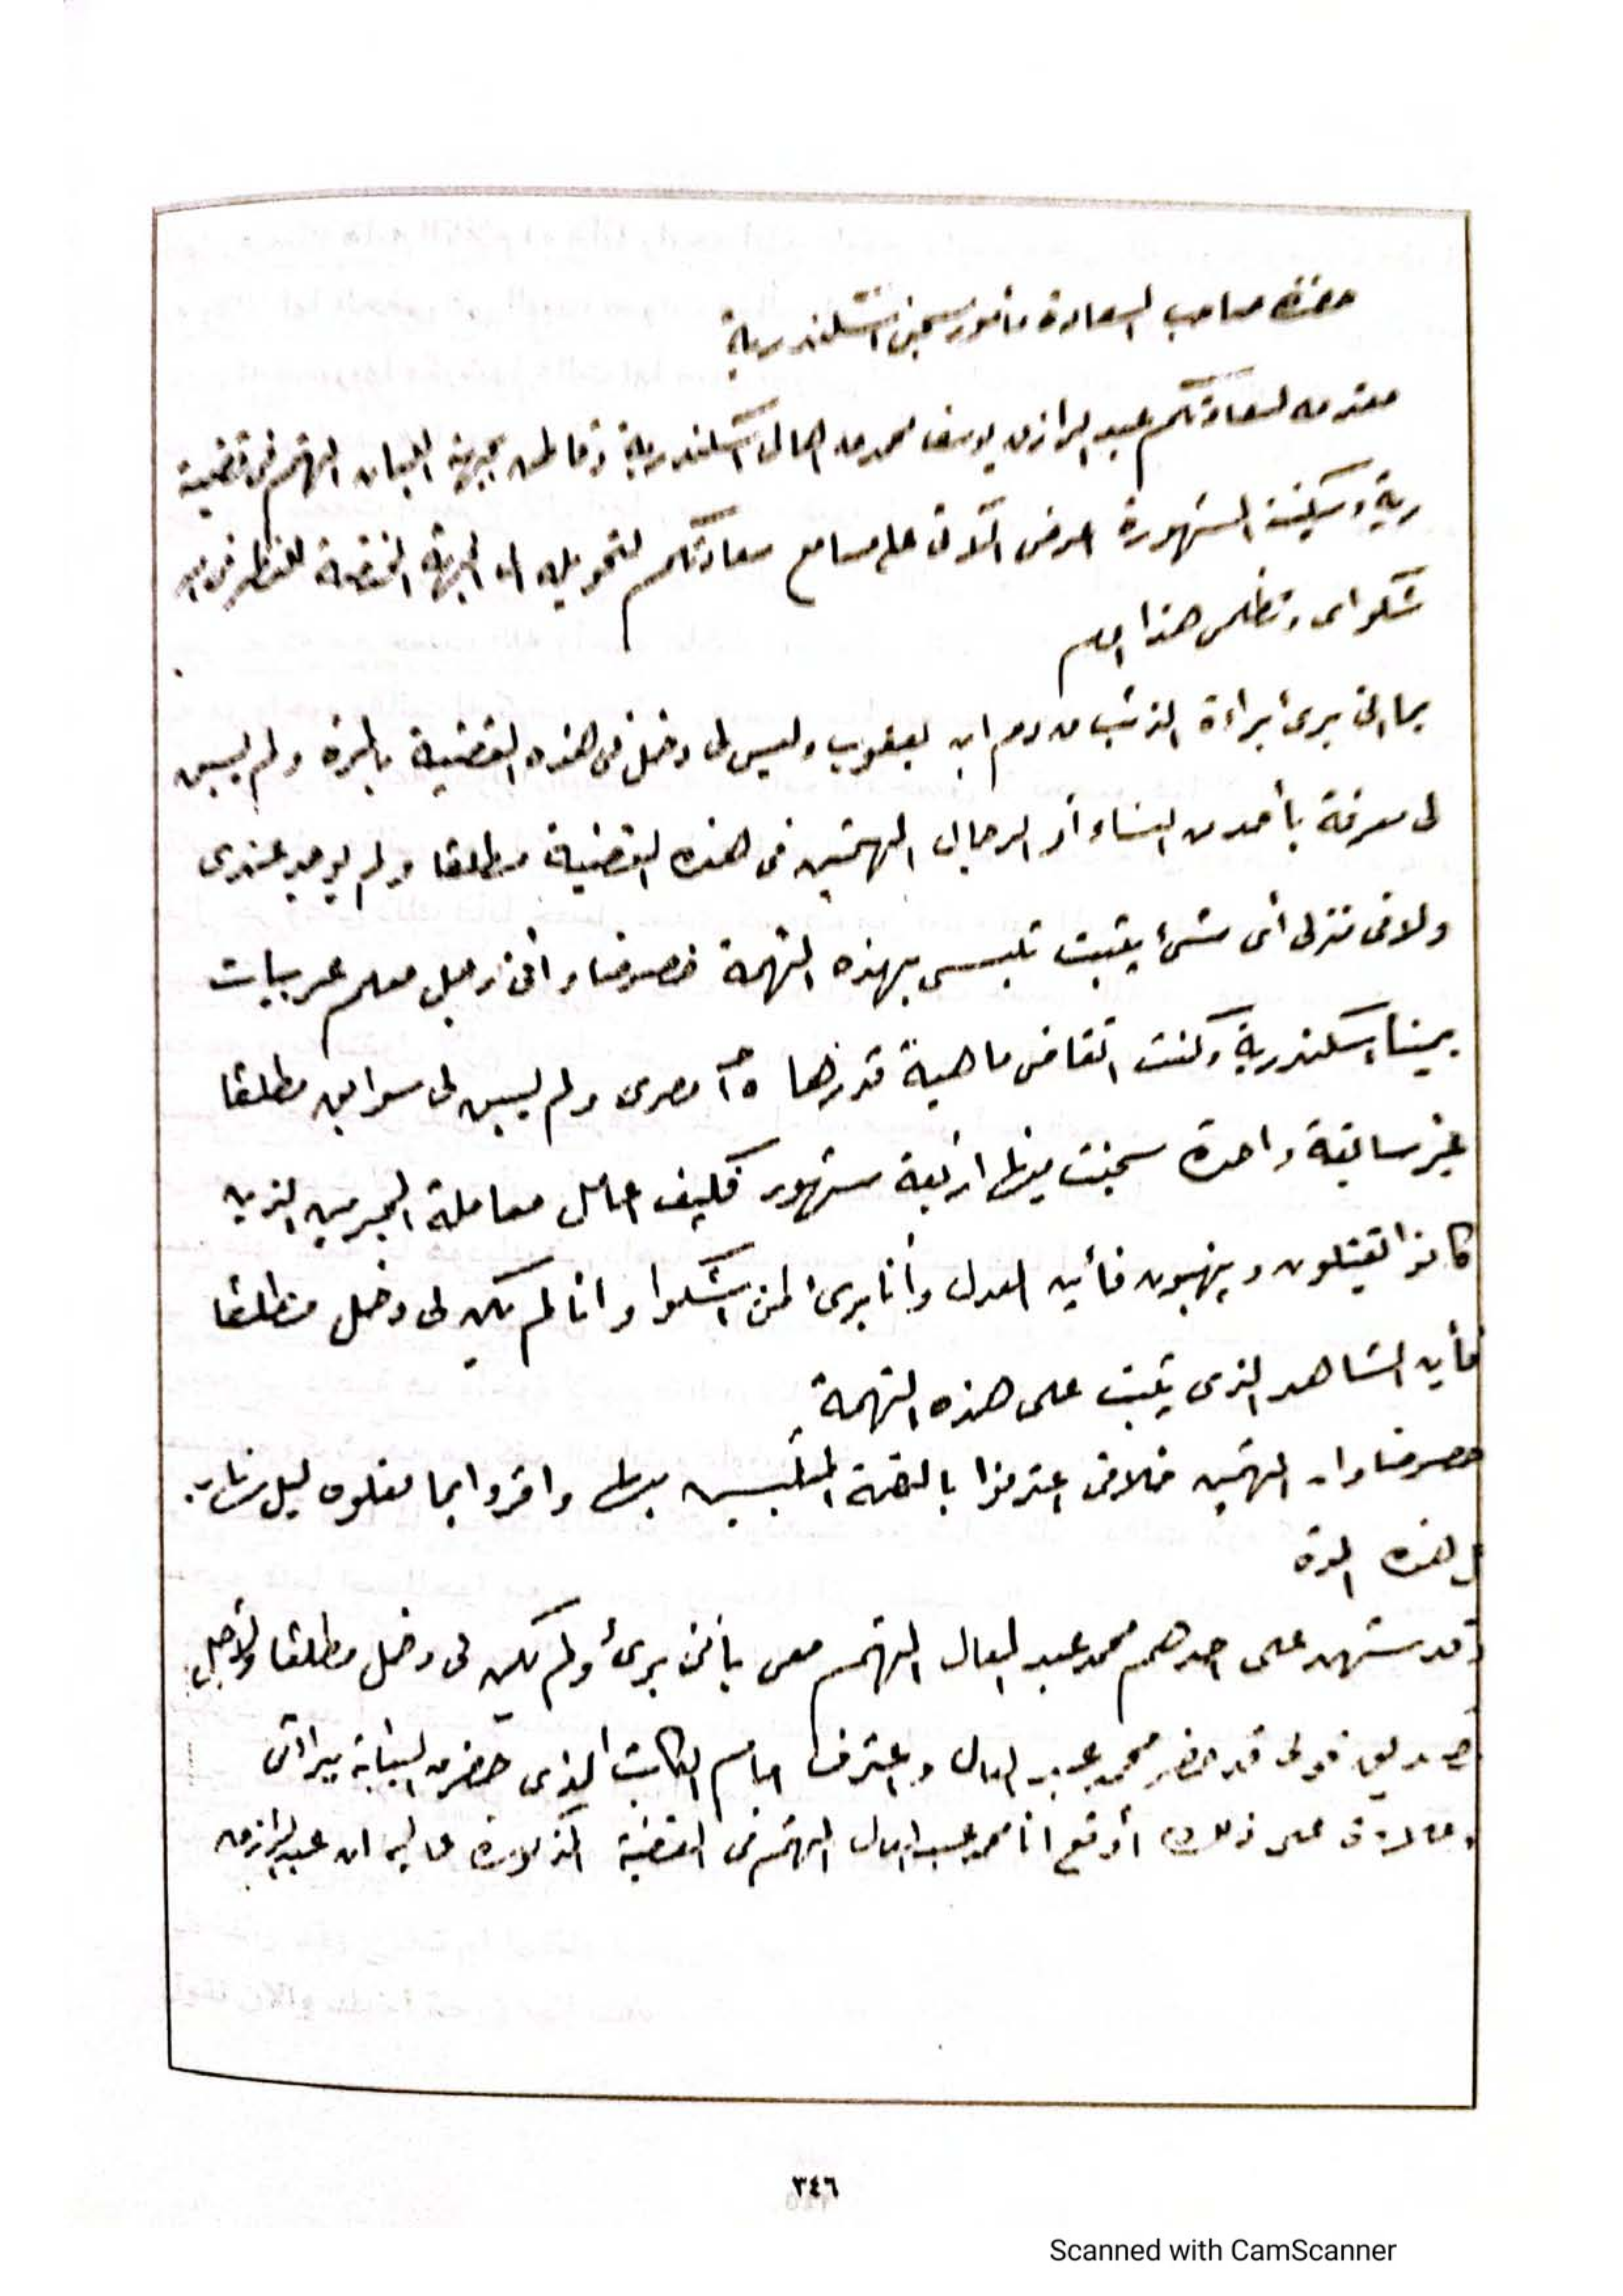 حضرة صاحب السعادة مأمور سجن اسكندرية
مقدمه لسعادتكم عبد الرازق يوسف محمد من اهالى اسكندرية وقاطن بجهة اللبان المتهم فى قضية
رية وسكينة المشهورة اعرض الآتى على مسامع سعادتكم لتحويله الى الجهة المختصة للنظر فى
شكواى وتظلمى هذا
بما انى برئ براءة الذئب من دم ابن يعقوب وليس لى دخل فى هذه القضية بالمرة ولم يسبق
لى معرفة بأحد من النساء أو الرجال المتهمين فى هذه القضية مطلقا ولم يوجد عندى
ولا فى منزلى أى شئ يثبت تلبسى بهذه التهمة خصوصا وانى رجل معلم عربيات
بمينا اسكندرية وكنت اتقاضى ماهية قدرها مصرى ولم يسبق لى سوابق مطلقا
غير سابقة واحدة سجنت فيها اربعة شهور فكيف اعامل معاملة المجرمين الذين
كانوا يقتلون وينهبون فأين العدل وأنا برئ لمن اشكوا وانا لم يكن لى دخل مطلقا
فأين الشاهد الذى يثبت على هذه التهمة
خصوصا وان المتهمين خلافى اعترفوا بالتهمة المتلبسين بها واقروا بما فعلوه ليل نهار
هذه المدة
وقد شهد على احدهم محمد عبد العال المتهم معى بأننى برئ ولم يكن لى دخل مطلقا ولأجل
تصديق قولى قد حضر محمد عبد العال واعترف امام الكاتب الذى حضر من النيابة ببرائتى
وعلاوة على ذلك أوقع انا محمد عبد العال المتهم فى القضية المذكورة عاليه ان عبد الرازق
٣٤٦
Scanned with CamScanner